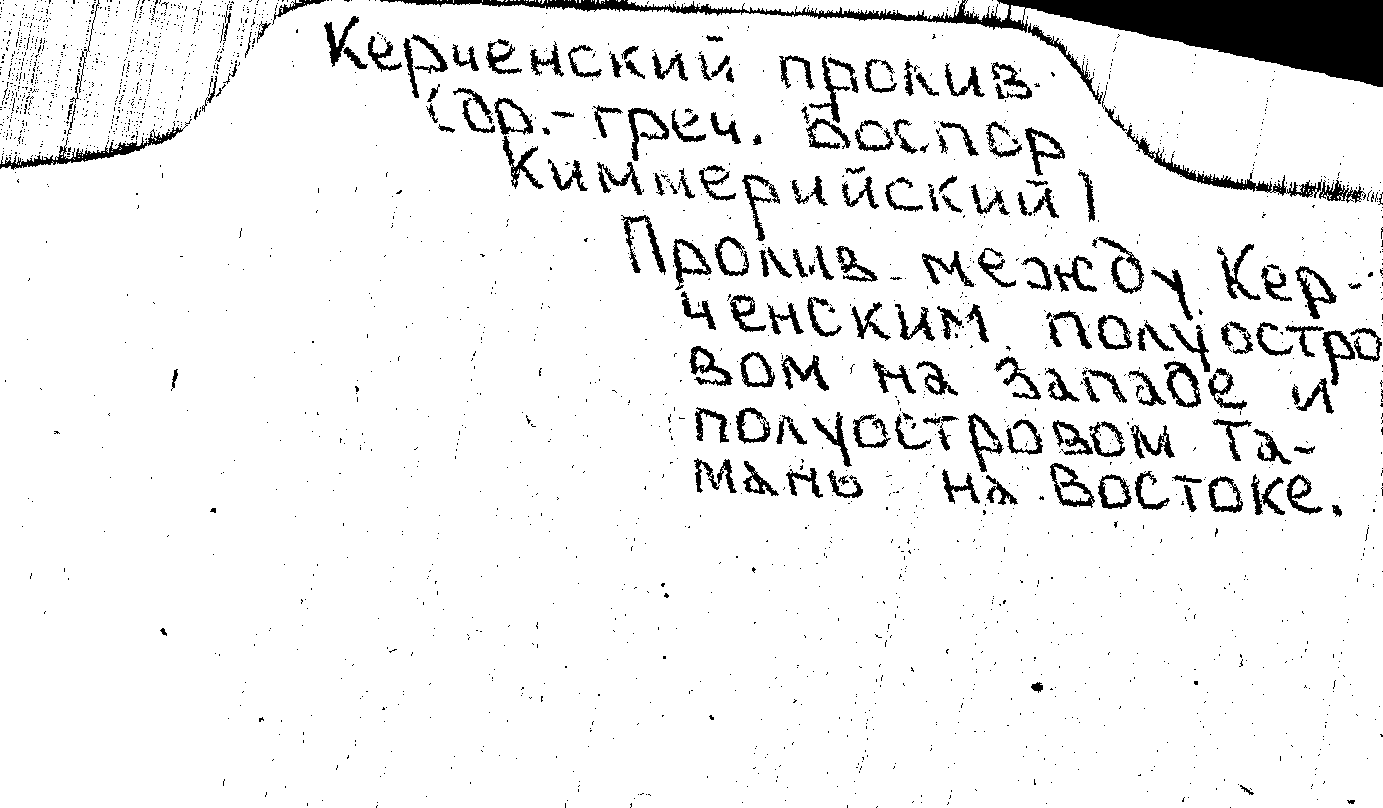 Керченский пролив
(др.-греч. Боспор
Киммерийский)
Пролив между Кер-
ченским полуостро
вом на западе и
полуостровом Та-
мань на востоке.